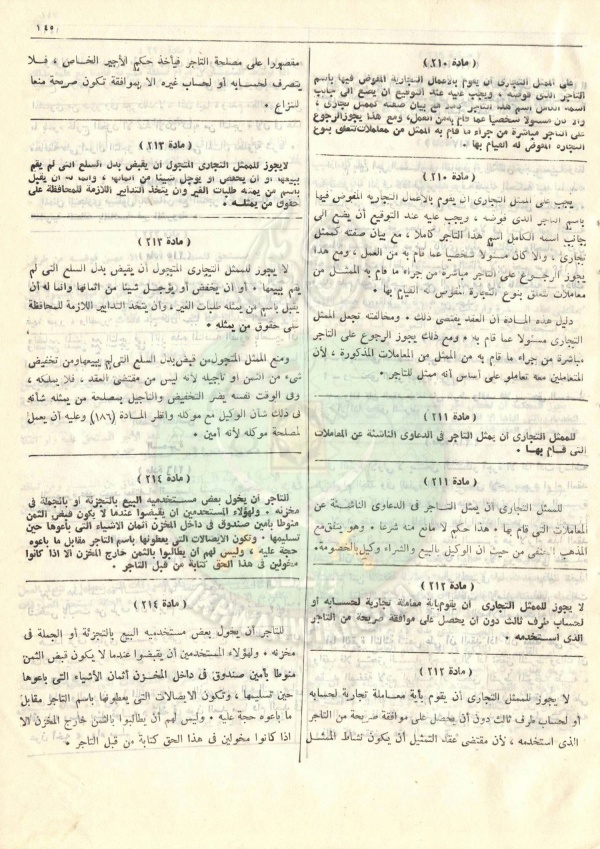 ١٤٥
( مادة ٢١٠ )
على الممثل التجارى أن يقوم بالأعمال التجارية المفوض فيها باسم
التاجر الذى فوضه ، ويجب عليه عند التوقيع أن يضع الى جانب
اسمه الكامل اسم هذا التاجر كاملا مع بيان صفته كممثل تجارى ،
والا كان مسئولا شخصيا عما قام به من العمل، ومع هذا يجوز الرجوع
على التاجر مباشرة من جراء ما قام به الممثل من معاملات تتعلق بنوع
التجارة المفوض له القيام بها .
( مادة ٢١٠ )
يجب على الممثل التجارى أن يقوم بالأعمال التجارية المفوض فيها
باسم التاجر الذى فوضه ، ويجب عليه عند التوقيع أن يضع الى
جانب اسمه الكامل اسم هذا التاجر كاملا ، مع بيان صفته كممثل
تجارى ، والا كان مسئولا شخصيا عما قام به من العمل ، ومع هذا
يجوز الرجوع على التاجر مباشرة من جراء ما قام به الممثل من
معاملات تتعلق بنوع التجارة المفوض له القيام بها .
دليل هذه المادة أن العقد يقتضى ذلك ، ومخالفته تجعل الممثل
التجارى مسئولا عما قام به ، ومع ذلك يجوز الرجوع على التاجر
مباشرة من جراء ما قام به من الممثل من المعاملات المذكورة ، لأن
المتعاملين معه تعاملوا على أساس أنه ممثل للتاجر .
( مادة ٢١١ )
للممثل التجارى أن يمثل التاجر فى الدعاوى الناشئة عن المعاملات
التى قام بها .
( مادة ٢١١ )
للممثل التجارى أن يمثل التاجر فى الدعاوى الناشئة عن
المعاملات التى قام بها . هذا حكم لا مانع منه شرعا . وهو يتفق مع
المذهب الحنفى من حيث ان الوكيل بالبيع والشراء وكيل بالخصومة .
( مادة ٢١٢ )
لا يجوز للممثل التجارى أن يقوم بأية معاملة تجارية لحسابه أو
لحساب طرف ثالث دون أن يحصل على موافقة صريحة من التاجر
الذى استخدمه .
( مادة ٢١٢ )
لا يجوز للممثل التجارى أن يقوم بأية معاملة تجارية لحسابه
أو لحساب طرف ثالث دون أن يحصل على موافقة صريحة من التاجر
الذى استخدمه ، لأن مقتضى عقد التمثيل أن يكون نشاط الممثل
مقصورا على مصلحة التاجر فيأخذ حكم الأجير الخاص ، فلا
يتصرف لحسابه أو لحساب غيره الا بموافقة تكون صريحة منعا
للنزاع .
( مادة ٢١٣ )
لا يجوز للممثل التجارى المتجول أن يقبض بدل السلع التى لم يقم
ببيعها أو أن يخفض أو يؤجل شيئا من أثمانها ، وانما له أن يقبل
باسم من يمثله طلبات الغير وأن يتخذ التدابير اللازمة للمحافظة على
حقوق من يمثله .
( مادة ٢١٣ )
لا يجوز للممثل التجارى المتجول أن يقبض بدل السلع التى لم
يقم ببيعها . أو أن يخفض أو يؤجل شيئا من اثمانها وانما له أن
يقبل باسم من يمثله طلبات الغير ، وأن يتخذ التدابير اللازمة للمحافظة
على حقوق من يمثله .
ومنع الممثل المتجول من قبض بدل السلع التى لم يبيعها ومن تخفيض
شىء من الثمن أو تأجيله لأنه ليس من مقتضى العقد ، فلا يملكه ،
وفى الوقت نفسه يضر التخفيض والتأجيل بمصلحة من يمثله شأنه
فى ذلك شأن الوكيل مع موكله وانظر المادة (١٨٦) وعليه أن يعمل
لمصلحة موكله لأنه أمين .
( مادة ٢١٤ )
للتاجر أن يخول بعض مستخدميه البيع بالتجزئة أو بالجملة فى
مخزنه . ولهؤلاء المستخدمين ان يقبضوا عندما لا يكون قبض الثمن
منوطا بأمين صندوق فى داخل المخزن أثمان الأشياء التى باعوها حين
تسليمها . وتكون الايصالات التى يعطونها باسم التاجر مقابل ما باعوه
حجة عليه ، وليس لهم ان يطالبوا بالثمن خارج المخزن الا اذا كانوا
مخولين فى هذا الحق كتابة من قبل التاجر .
( مادة ٢١٤ )
للتاجر أن يخول بعض مستخدميه البيع بالتجزئة أو الجملة فى
مخزنه . ولهؤلاء المستخدمين أن يقبضوا عندما لا يكون قبض الثمن
منوطا بأمين صندوق فى داخل المخزن أثمان الأشياء التى باعوها
حين تسليمها ، وتكون الايصالات التى يعطونها باسم التاجر مقابل
ما باعوه حجة عليه . وليس لهم أن يطالبوا بالثمن خارج المخزن الا
اذا كانوا مخولين فى هذا الحق كتابة من قبل التاجر .